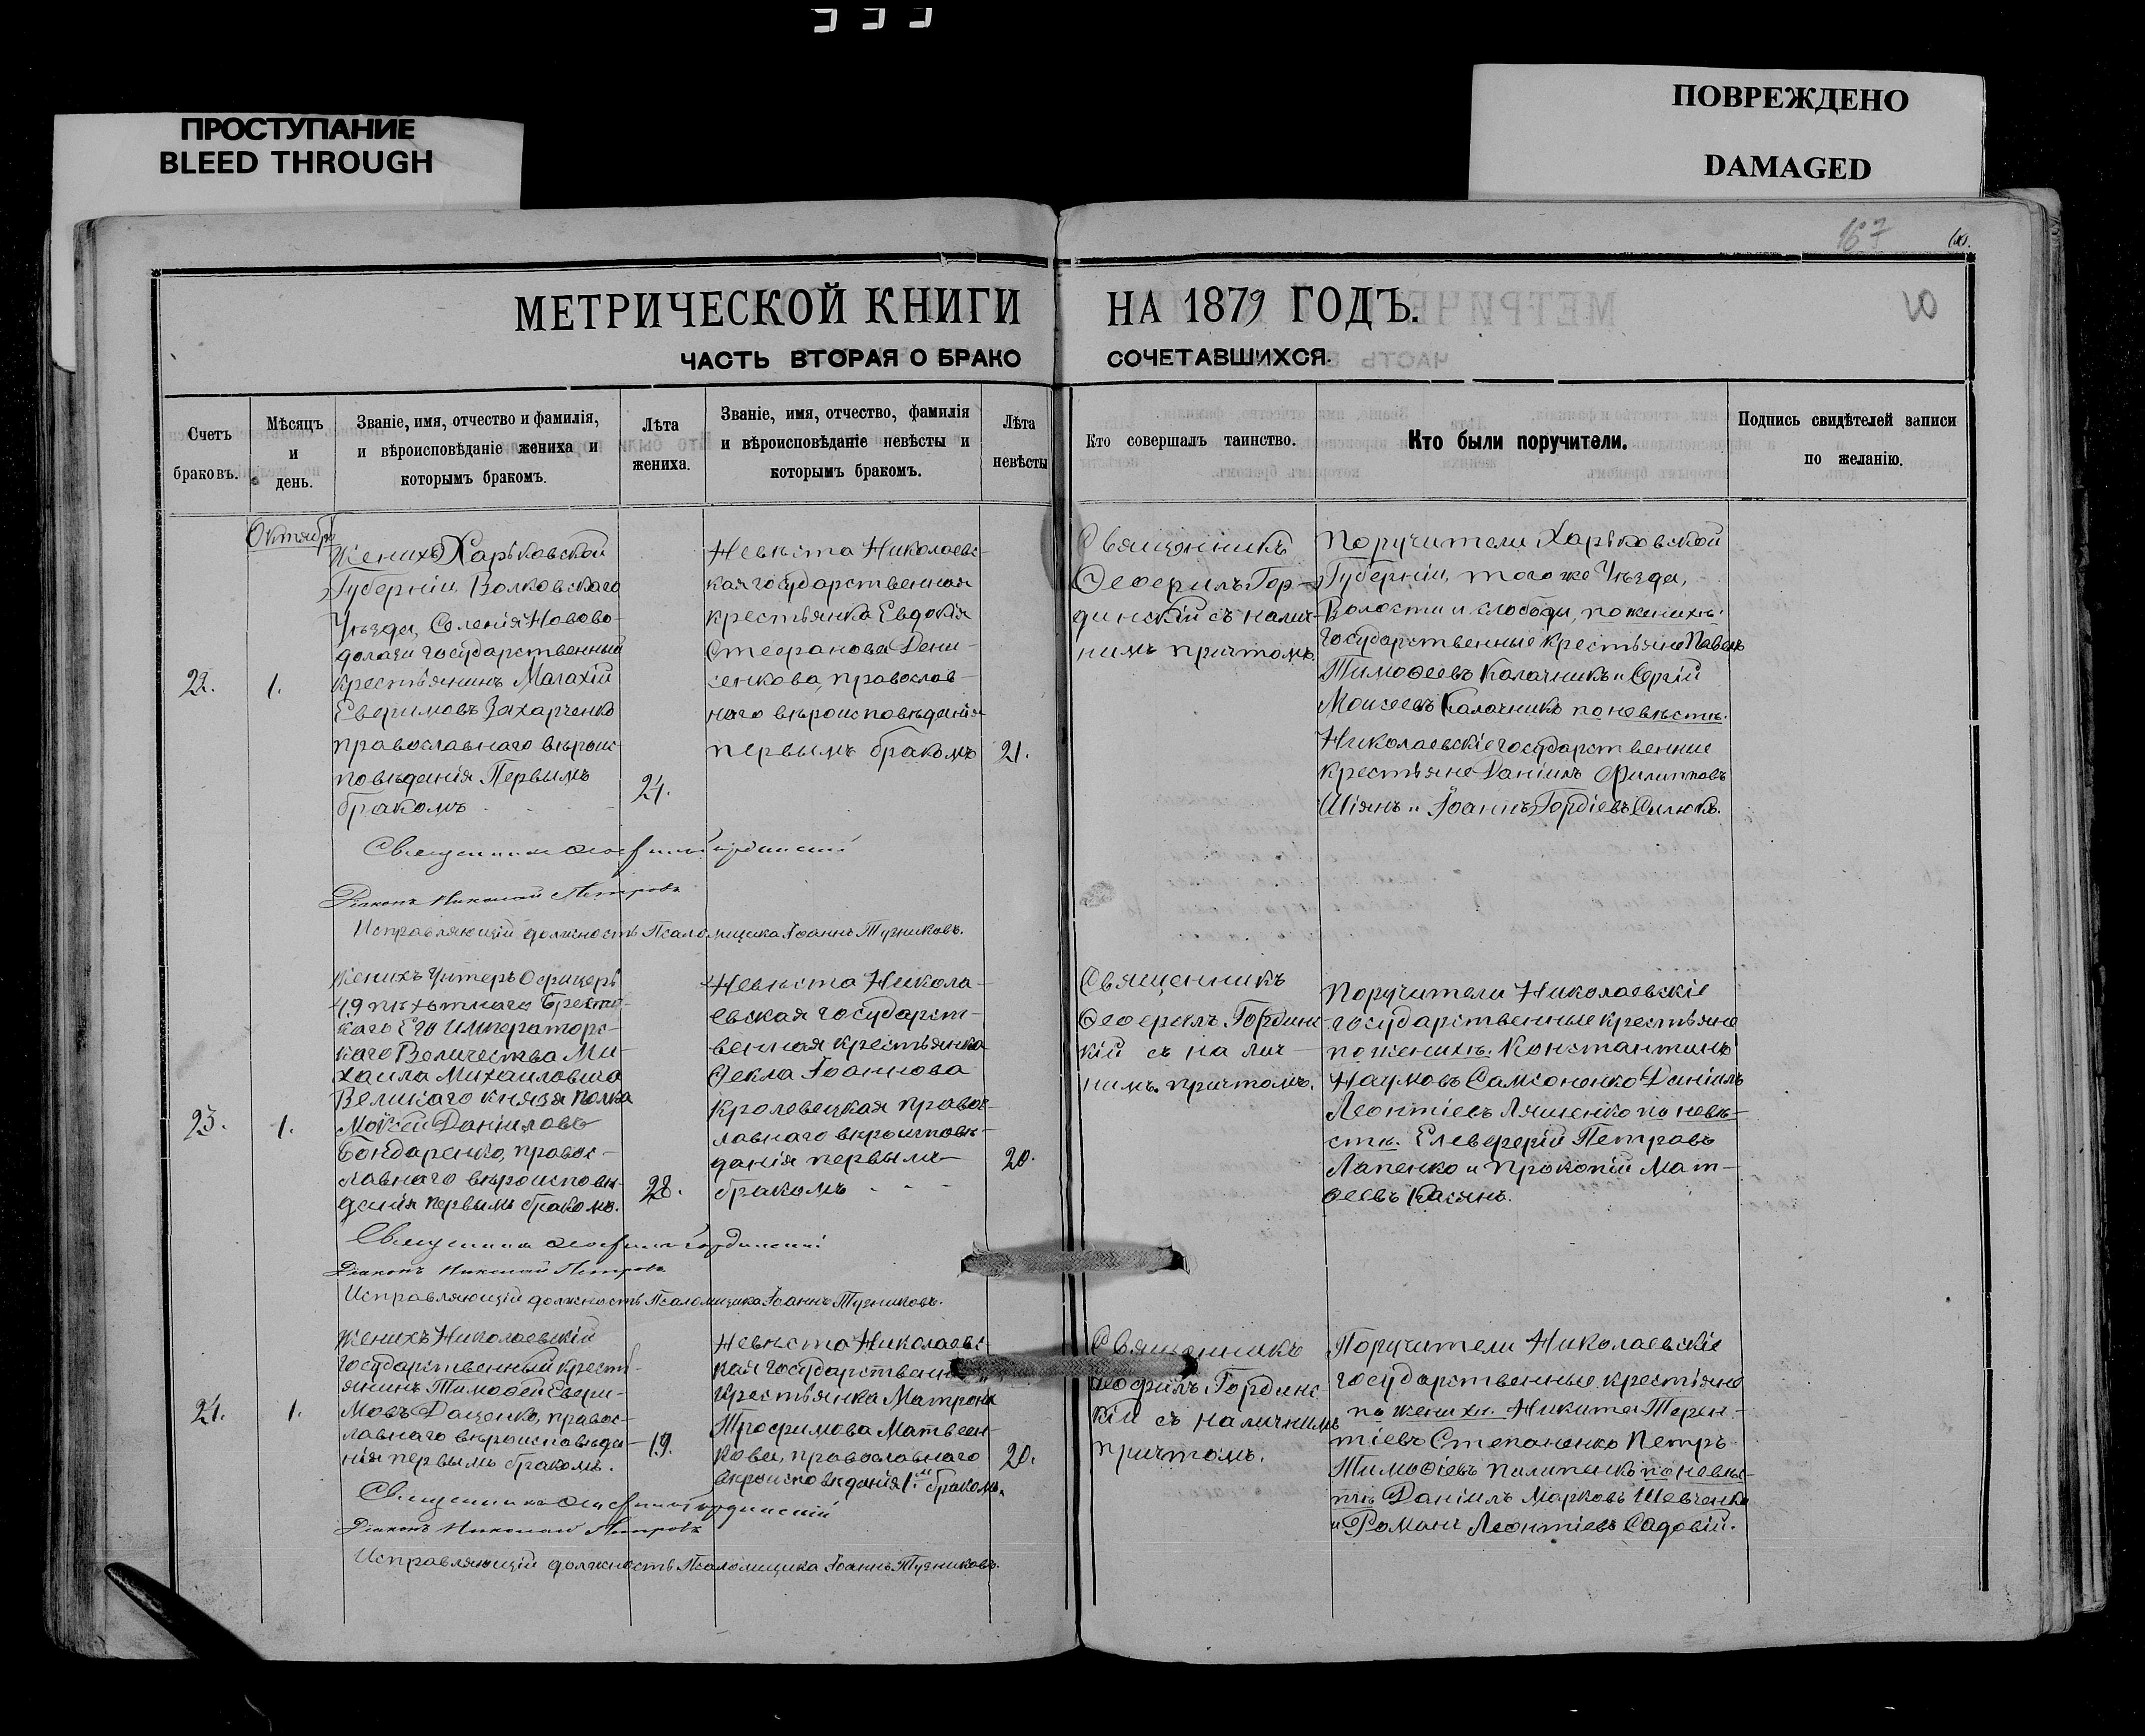 ПРОСТУПАНИЕ
BLEED THROUGH
ПОВРЕЖДЕНО
DAMAGED
167
МЕТРИЧЕСКОЙ КНИГИ НА 1879 ГОДЪ.
ЧАСТЬ ВТОРАЯ О БРАКО СОЧЕТАВШИХСЯ.
Счетъ
браковъ.
Мѣсяцъ
и
день.
Званіе, имя, отчество и фамилія,
и вѣроисповѣданіе жениха и
которымъ бракомъ.
Лѣта
жениха.
Званіе, имя, отчество, фамилія
и вѣроисповѣданіе невѣсты и
которымъ бракомъ.
Лѣта
невѣсты
Кто совершалъ таинство.
Кто были поручители.
Подпись свидѣтелей записи
по желанію.
22.
Октября
1.
Женихъ Харьковской
Губерніи, Волковскаго
Уѣзда, Селенія Новово-
долаги государственный
крестьянинъ Малахій
Евфимовъ Захарченко
православнаго вѣроис-
повѣданія Первымъ
бракомъ
24.
Невѣста Николаевс-
кая государственная
крестьянка Евдокія
Стефанова Дени-
сенкова, православ-
наго вѣроисповѣданія
первымъ бракомъ
21.
Священникъ
Ѳеофилъ Гор-
динскій съ налич-
нимъ причтомъ.
Поручители Харьковской
Губерніи, того же Уѣзда,
Волости и слободы, по женихѣ:
государственные крестьяне Павелъ
Тимоѳеевъ Калачникъ и Сергій
Моисеевъ Калачникъ по невѣстѣ.
Николаевскіе государственние
крестьяне Даніилъ Филипповъ
Шіянъ и Іоаннъ Гордіевъ Силюкъ.
Священникъ Ѳеофилъ Гординскій
Діаконъ Николай Петровъ
Исправляющій должность Псаломщика Іоаннъ Тучниковъ.
23.
1.
Женихъ Унтеръ Офицеръ
49 пѣхотнаго Брестс-
каго Его Императорс-
каго Величества Ми-
хаила Михаиловича
Великаго князя полка
Моѵсей Даніиловъ
Бондаренко, правос-
лавнаго вѣроисповѣ-
данія первымъ бракомъ.
28.
Невѣста Никола-
евская государст-
венная крестьянка
Ѳекла Іоаннова
Кролевецкая правос-
лавнаго вѣроисповѣ-
данія первымъ
бракомъ
20.
Священникъ
Ѳеофилъ Гординс-
кій съ на лич-
нимъ причтомъ.
Поручители Николаевскіе
государственные крестьяне
по женихѣ. Константинъ
Наумовъ Самсоненко Даніилъ
Леонтіевъ Ляшенко по невѣ-
стѣ. Елеѳферій Петровъ
Лапенко и Прокопій Мат-
ѳеевъ Касянъ.
Священникъ Ѳеофилъ Гординскій
Діаконъ Николай Петровъ
Исправляющій должность Псаломщика Іоаннъ Тучниковъ.
24.
1.
Женихъ Николаевскій
государственный кресть-
янинъ Тимоѳей Евфи-
мовъ Даценко, правос-
лавнаго вѣроисповѣда-
нія первымъ бракомъ.
19.
Невѣста Николаевс-
кая государственная
крестьянка Матрона
Трофимова Матвеен-
кова, православнаго
вѣроисповѣданія 1.м бракомъ.
20.
Священникъ
Ѳеофилъ Гординс-
кій съ наличнимъ
причтомъ.
Поручители Николаевскіе
государственные крестьяне
по женихѣ. Никита Терен-
тіевъ Степаненко Петръ
Тимоѳіевъ по невѣс-
тѣ Даніилъ Марковъ Шевченко
и Романъ Леонтіевъ Садовій.
Священникъ Ѳеофилъ Гординскій
Діаконъ Николай Петровъ
Исправляющій должность Псаломщика Іоаннъ Тучниковъ.